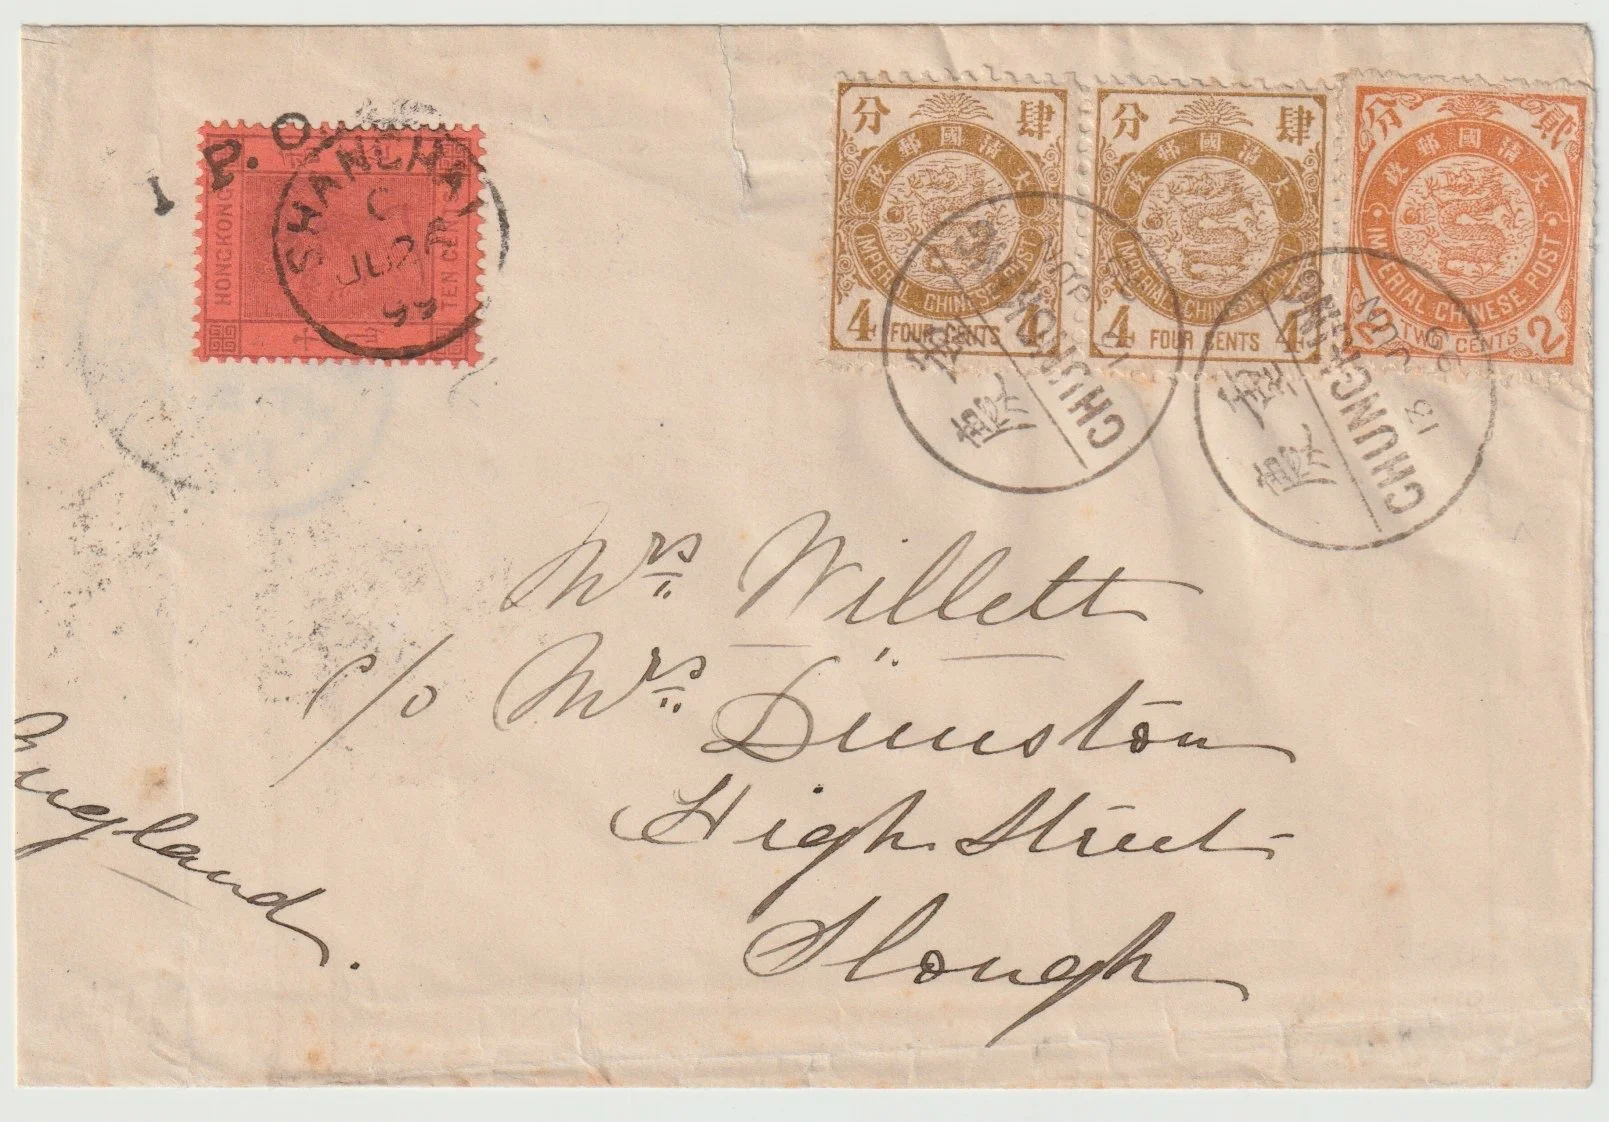 I. P. O.
SHANGHAI
C
99
HONGKONG
TEN CENTS
分 肆
大清國郵政
IMPERIAL CHINESE POST
4 FOUR CENTS 4
分 肆
大清國郵政
IMPERIAL CHINESE POST
4 FOUR CENTS 4
分 貳
大清國郵政
IMPERIAL CHINESE POST
2 TWO CENTS 2
CHUNGKING
JUN
12
重慶
CHUNGKING
99
JUN
12
重慶
Mrs. Willett
c/o Mrs. Dunston
High Street
Slough
England.